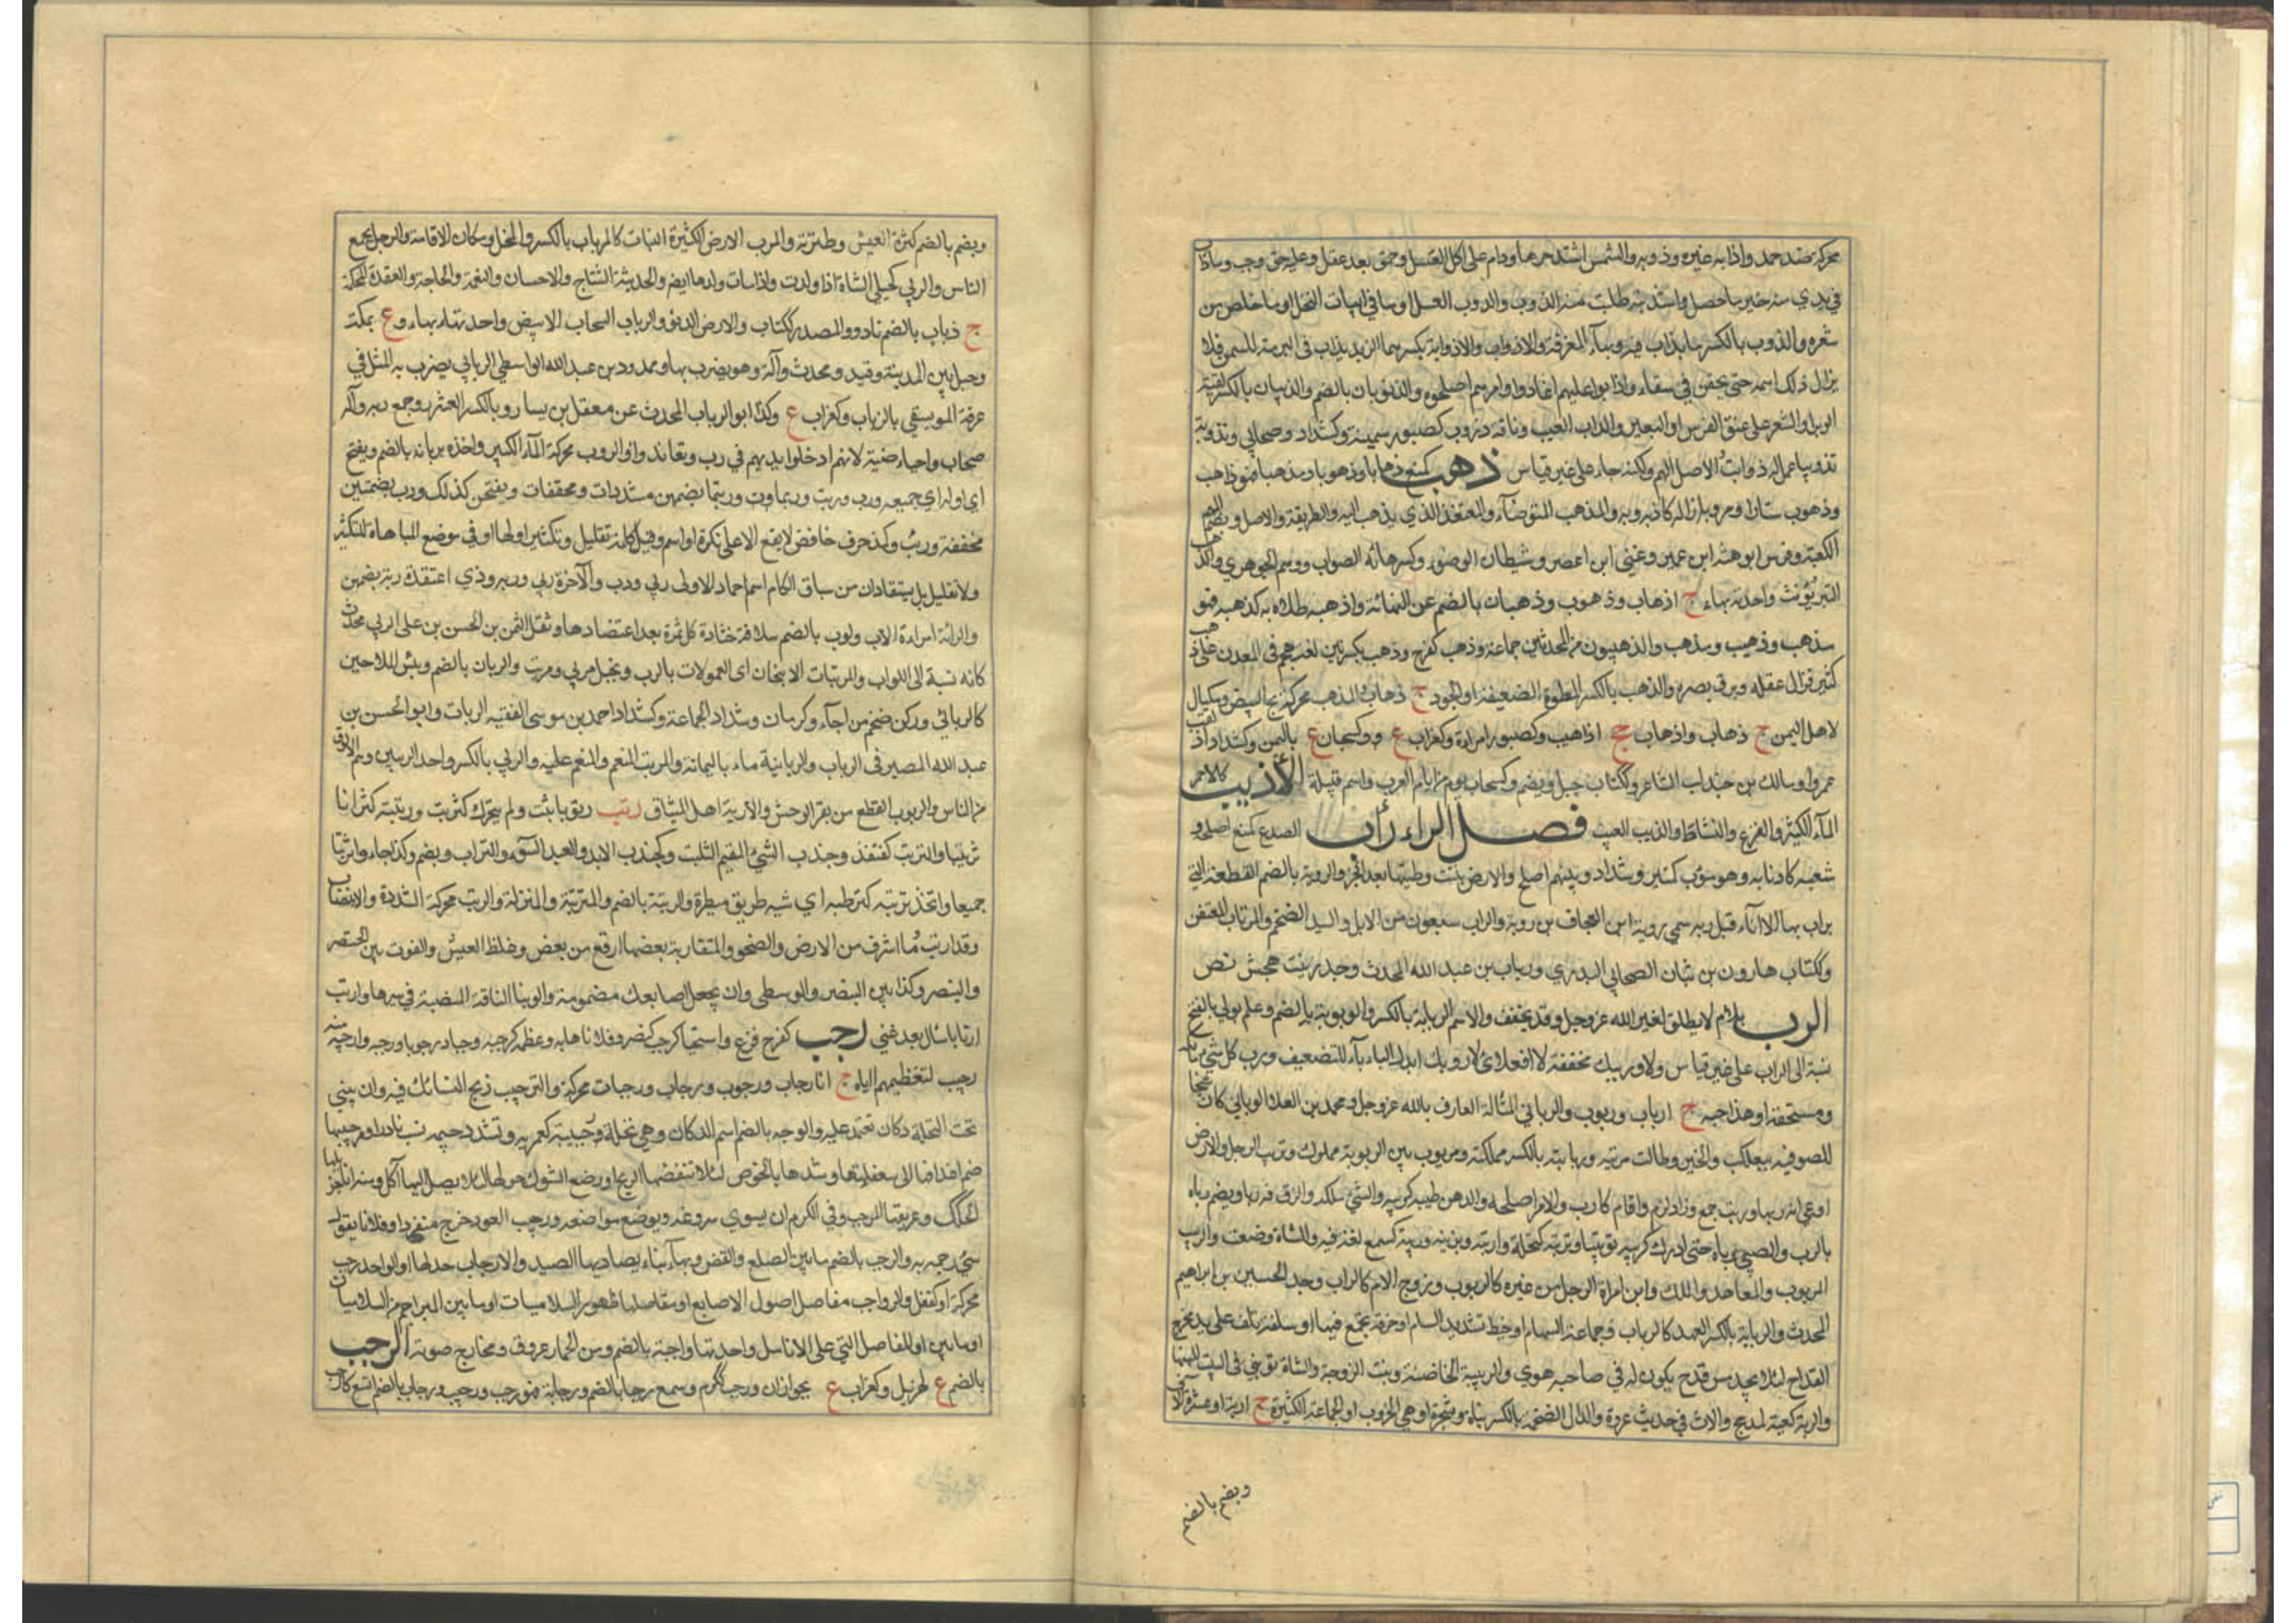 محركة ضد جمد واذابه غيره وذوبه والشمس اشتد حرها ودام على اكل العسل وحمق بعد عقل وعليه حق وجب وماذاب
في يدي منه خير ما حصل واستذبته طلبت منه الذوب والذوب العسل او ما في ابيات النحل او ما خلص من
شعره والذوب بالكسر ما يذاب فيه وبهآء المغرفة والاذواب والاذوابة بكسرهما الزبد يذاب في البرمة للسمن فلا
يزال ذلك اسمه حتى يحقن في سقاء واذابوا عليهم اغاروا وامرهم اصلحوه والذوبان بالضم والذيبان بالكسر بقية
الوبر او الشعر على عنق الفرس او البعير والذاب العيب وناقة ذؤوب كصبور سمينة وكشداد صحابي وذوبة
تذويبا عمل له ذوابة والاصل الهمز ولكنه جاء على غير قياس ذهب كمنع ذهابا وذهوبا ومذهبا فهو ذاهب
وذهوب سار او مر وبه ازاله كاذهبه وبه والمذهب المتوضأ والمعتقد الذي يذهب اليه والطريقة والاصل وبضم الميم
الكعبة وفرس ابرهة ابن عمير وغني ابن اعصر وشيطان الوضوء وكسر هائه الصواب ووهم الجوهري والذهب
التبر يؤنث واحدته بهاء ج اذهاب وذهوب وذهبان بالضم عن النهاية واذهبه طلاه به كذهبه فهو
مذهب وذهيب ومذهب والذهبيون من المحدثين جماعة وذهب كفرح وذهب بكسرتين لغة هجم في المعدن على ذهب
كثير فزال عقله وبرق بصره والذهبة بالكسر المطرة الضعيفة او الجود ج ذهاب والذهب محركة مح البيض ومكيال
لاهل اليمن ج ذهاب واذهاب جج اذاهيب وكصبور امراة وكغراب ع وكسحبان ع باليمن وكشداد لقب
عمرو او مالك بن جندل الشاعر وككتاب جبل ويضم وكسحاب يوم من ايام العرب واسم قبيلة الأذيب كالاحمر
المآء الكثير والفزع والنشاط والذيب العيب فصل الراء رأب الصدع كمنع اصلحه و
شعبه كارتابه وهو مرأب كمنبر وشداد وبينهم اصلح والارض نبتت رطبتها بعد الجز والروبة بالضم القطعة التي
يراب بها الاناء قيل وبه سمي روبة ابن العجاج بن روبة والراب سبعون من الابل والسيد الضخم والمرتاب المغتفن
وككتاب هارون بن رئاب الصحابي البدري ورئاب بن عبد الله المحدث وجد زينب بنت جحش نص
الرب باللام لا يطلق لغير الله عز وجل وقد يخفف والاسم الربابة بالكسر والربوبية بالضم وعلم ربوبي بالفتح
نسبة الى الراب على غير قياس ولا وربيك مخففة لا افعل اي لا وربك ابدل الباء ياء للتضعيف ورب كل شيء مالكه
ومستحقه او صاحبه ج ارباب وربوب والرباني المتألة العارف بالله عز وجل ومحمد بن العلاء الرباني كان شيخا
للصوفية ببعلبك والحبر وطالت مربته وربابته بالكسر مملكته ومربوب بين الربوبة مملوك ورب الرجل والارض
ورب جمع وزاد ولزم واقام كارب والامر اصلحه والدهن طيبه كربيه والشيء ملكه والزق ربه ويضم رباه
بالرب والصبي رباه حتى ادرك كربيه تربيبا وتربة كتحلة وارتبه وربيته وربيته كسمع لغة فيه والشاة وضعت والربيب
المربوب والمعاهد والملك وابن امراة الرجل من غيره كالربوب وزوج الام كالراب وجد الحسين بن ابراهيم
المحدث والربابة بالكسر العهد كالرباب وجماعة السهام او خيط تشد به السهام او خرقة تجمع فيها او سلفة تلف على يد مخرج
القداح لئلا يجد مس قدح يكون له في صاحبه هوى والربيبة الحاضنة وبنت الزوجة والشاة تربى في البيت للبنها
والربة كعبة لمذحج واللات في حديث عروة والدار الضخمة بالكسر نبات وشجرة او هي الخروب او الجماعة الكثيرة ج اربة او عشرة آلاف
وبضم بالضم
وبضم بالضم كثرة العيش وطثرته والمرب الارض الكثيرة النبات كالمرباب بالكسر والمحل ومكان الاقامة والرجل يجمع
الناس والربي كحبلى الشاة اذا ولدت واذا مات ولدها ايضا والحديثة النتاج والاحسان والنعمة والحاجة والعقدة المحكمة
ج رباب بالضم نادر والمصدر ككتاب والارض الدنو والرباب السحاب الابيض واحدته بهاء وع بمكة
وجبل بين المدينة وفيد ومحدث وآلة لهو يضرب بها وممدود بن عبد الله الواسطي الربابي يضرب به المثل في
معرفة الموسيقى بالرباب وكغراب ع وكذا ابو الرباب المحدث عن معقل بن يسار وبالكسر العشور وجمع ربة و
صحاب واحياء ضبة لانهم ادخلوا ايديهم في رب وتعاقدوا والربب محركة المآء الكثير واخذه بربانه بالضم ويفتح
اي اوله او جميعه ورب وربت وربما وربتما بضمهن مشددات ومخففات وبفتحهن كذلك ورب بضمتين
مخففة ورب كمذ حرف خافض لا يقع الا على نكرة او اسم وقيل كلمة تقليل وتكثير او لهما او في موضع المباهاة للتكثير
ولا تقليل بل يستفادان من سياق الكلام اسم جمادى الاولى ربى ورب والآخرة ربى وربة وذي القعدة ربة بضمهن
والرابة امراة الاب والرب بالضم سلافة خثارة كل ثمرة بعد اعتصارها وثفل السمن بن الحسن بن علي الربي محدث
كانه نسبة الى الرب والمربيات الانبجات اي المعمولات بالرب وزنجبيل مربى ومربب والربان بالضم رئيس الملاحين
كالرباني وركن ضخم من اجآء وكرمان وشداد الجماعة وكشداد احمد بن موسى الفقيه الرباب وابو الحسن بن
عبد الله المصير في الرباب والربانية ماء باليمامة والمربب المنعم والمنعم عليه والربي بالكسر واحد الربيين وهم الالوف
من الناس والربرب القطيع من بقر الوحش والاربة اهل الميثاق رتب رتوبا ثبت ولم يتحرك كترتب ورتبته انا
ترتيبا والترتب كقنفذ وجندب الشيء المقيم الثابت وكجندب الابد والعبد السوء والتراب ويضم وكذا جاءوا ترتبا
جميعا واتخذ ترتبة كترطبة اي شبه طريق يطؤه والرتبة بالضم والمرتبة والمنزلة والرتب محركة الشدة والانصباب
وقد ارتب وما اشرف من الارض والصخور المتقاربة بعضها ارفع من بعض وغلظ العيش والفوت بين الخنصر
والبنصر وكذا بين البنصر والوسطى وان تجعل اصابعك مضمومة والرتباء الناقة المنتصبة في سيرها وارتب
ارتابا سال بعد غنى رجب كفرح فزع واستحيا كرجب كنصر وفلانا هابه وعظمه كرجبه رجبا ورجوبا ورجبه وارجبه ومنه
رجب لتعظيمهم اياه ج ارجاب ورجوب ورجاب ورجبات محركة والترجيب ذبح النسائك فيه وان يبنى
تحت النخلة دكان تعتمد عليه والرجبة بالضم اسم الدكان وهي نخلة رجبية كعمرية وتشدد جيمه نسب نادر او ترجيبها
ضم اعذاقها الى سعفاتها وشدها بالخوص لئلا تنفضها الريح او وضع الشوك حولها لئلا يصل اليها آكل ومنه انا جذيلها
المحكك وعذيقها المرجب وفي الكرم ان يسوى سروغه ويوضع مواضعه ورجب العود خرج منفردا وفلانا بقول
سيئ رجمه به والرجب بالضم ما بين الضلع والقص وبهآء بناء يصاد بها الصيد والارجاب الامعاء لا واحد لها او الواحد رجب
محركة او كقفل والرواجب مفاصل اصول الاصابع او مفاصلها او ظهور السلاميات او ما بين البراجم من السلاميات
او ما بين او المفاصل التي على الانامل واحدتها راجبة بالضم ومن الحمار عروق ومخارج صوته الرحب
بالضم ع لهذيل وكغراب ع بحوران ورحب ككرم وسمع رحبا بالضم ورحابة فهو رحب ورحيب ورحاب بالضم اتسع كارحب